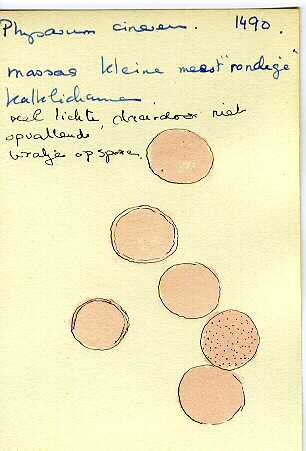 Physarum cinereum. 1490.
massas kleine meest "rondige"
kalklichamen.
veel lichte, daardoor niet
opvallende,
wratjes op sporen.